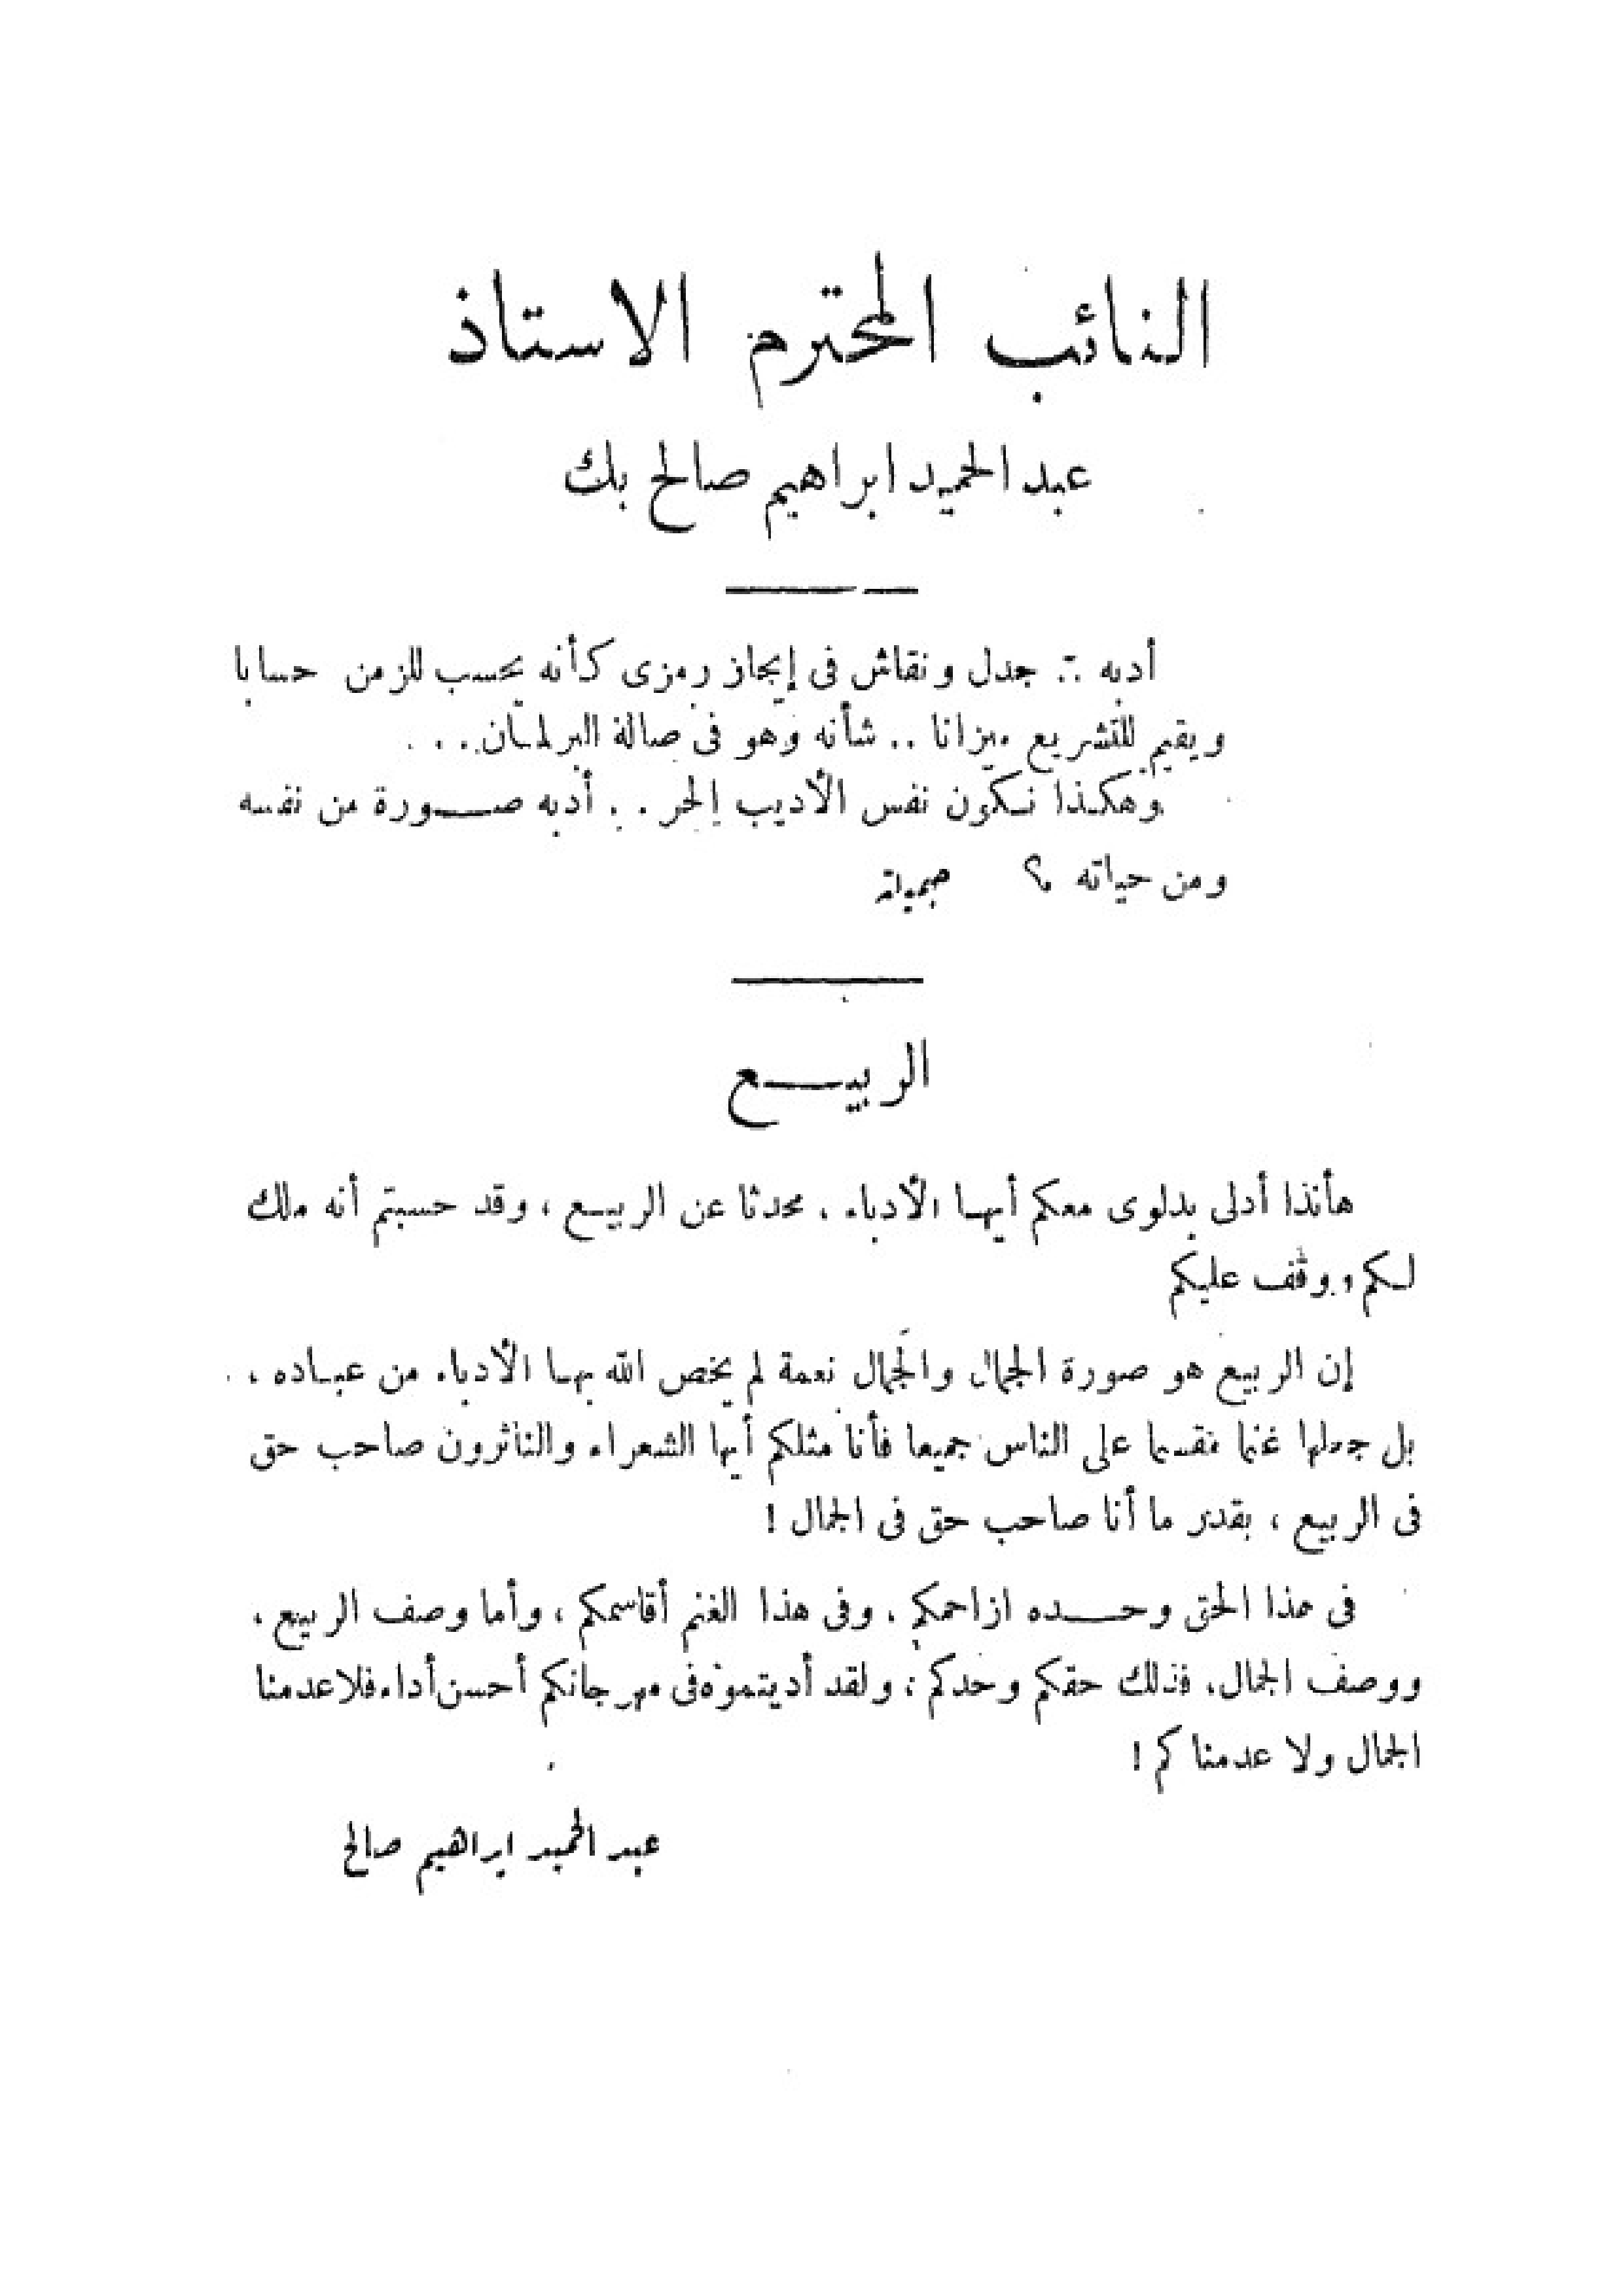 النائب المحترم الاستاذ
عبد الحميد ابراهيم صالح بك
أدبه .. جدل ونقاش فى إيجاز رمزى كأنه يحسب للزمن حسابا
ويقيم للتشريع ميزانا .. شأنه وهو فى صالة البرلمان ...
وهكذا تكون نفس الأديب الحر .. أدبه صورة من نفسه
ومن حياته ؟ جميلة
الربيع
هأنذا أدلى بدلوى معكم أيها الأدباء ، محدثا عن الربيع ، وقد حسبتم أنه ملك
لكم ووقف عليكم
إن الربيع هو صورة الجمال والجمال نعمة لم يخص الله بها الأدباء من عباده ،
بل جعلها غنما مقسما على الناس جميعا فأنا مثلكم أيها الشعراء والناثرون صاحب حق
فى الربيع ، بقدر ما أنا صاحب حق فى الجمال !
فى هذا الحق وحده ازاحمكم ، وفى هذا الغنم أقاسمكم ، وأما وصف الربيع ،
ووصف الجمال، فذلك حقكم وحدكم ، ولقد أديتموه فى مهرجانكم أحسن أداء فلا عدمنا
الجمال ولا عدمناكم !
عبد الحميد ابراهيم صالح